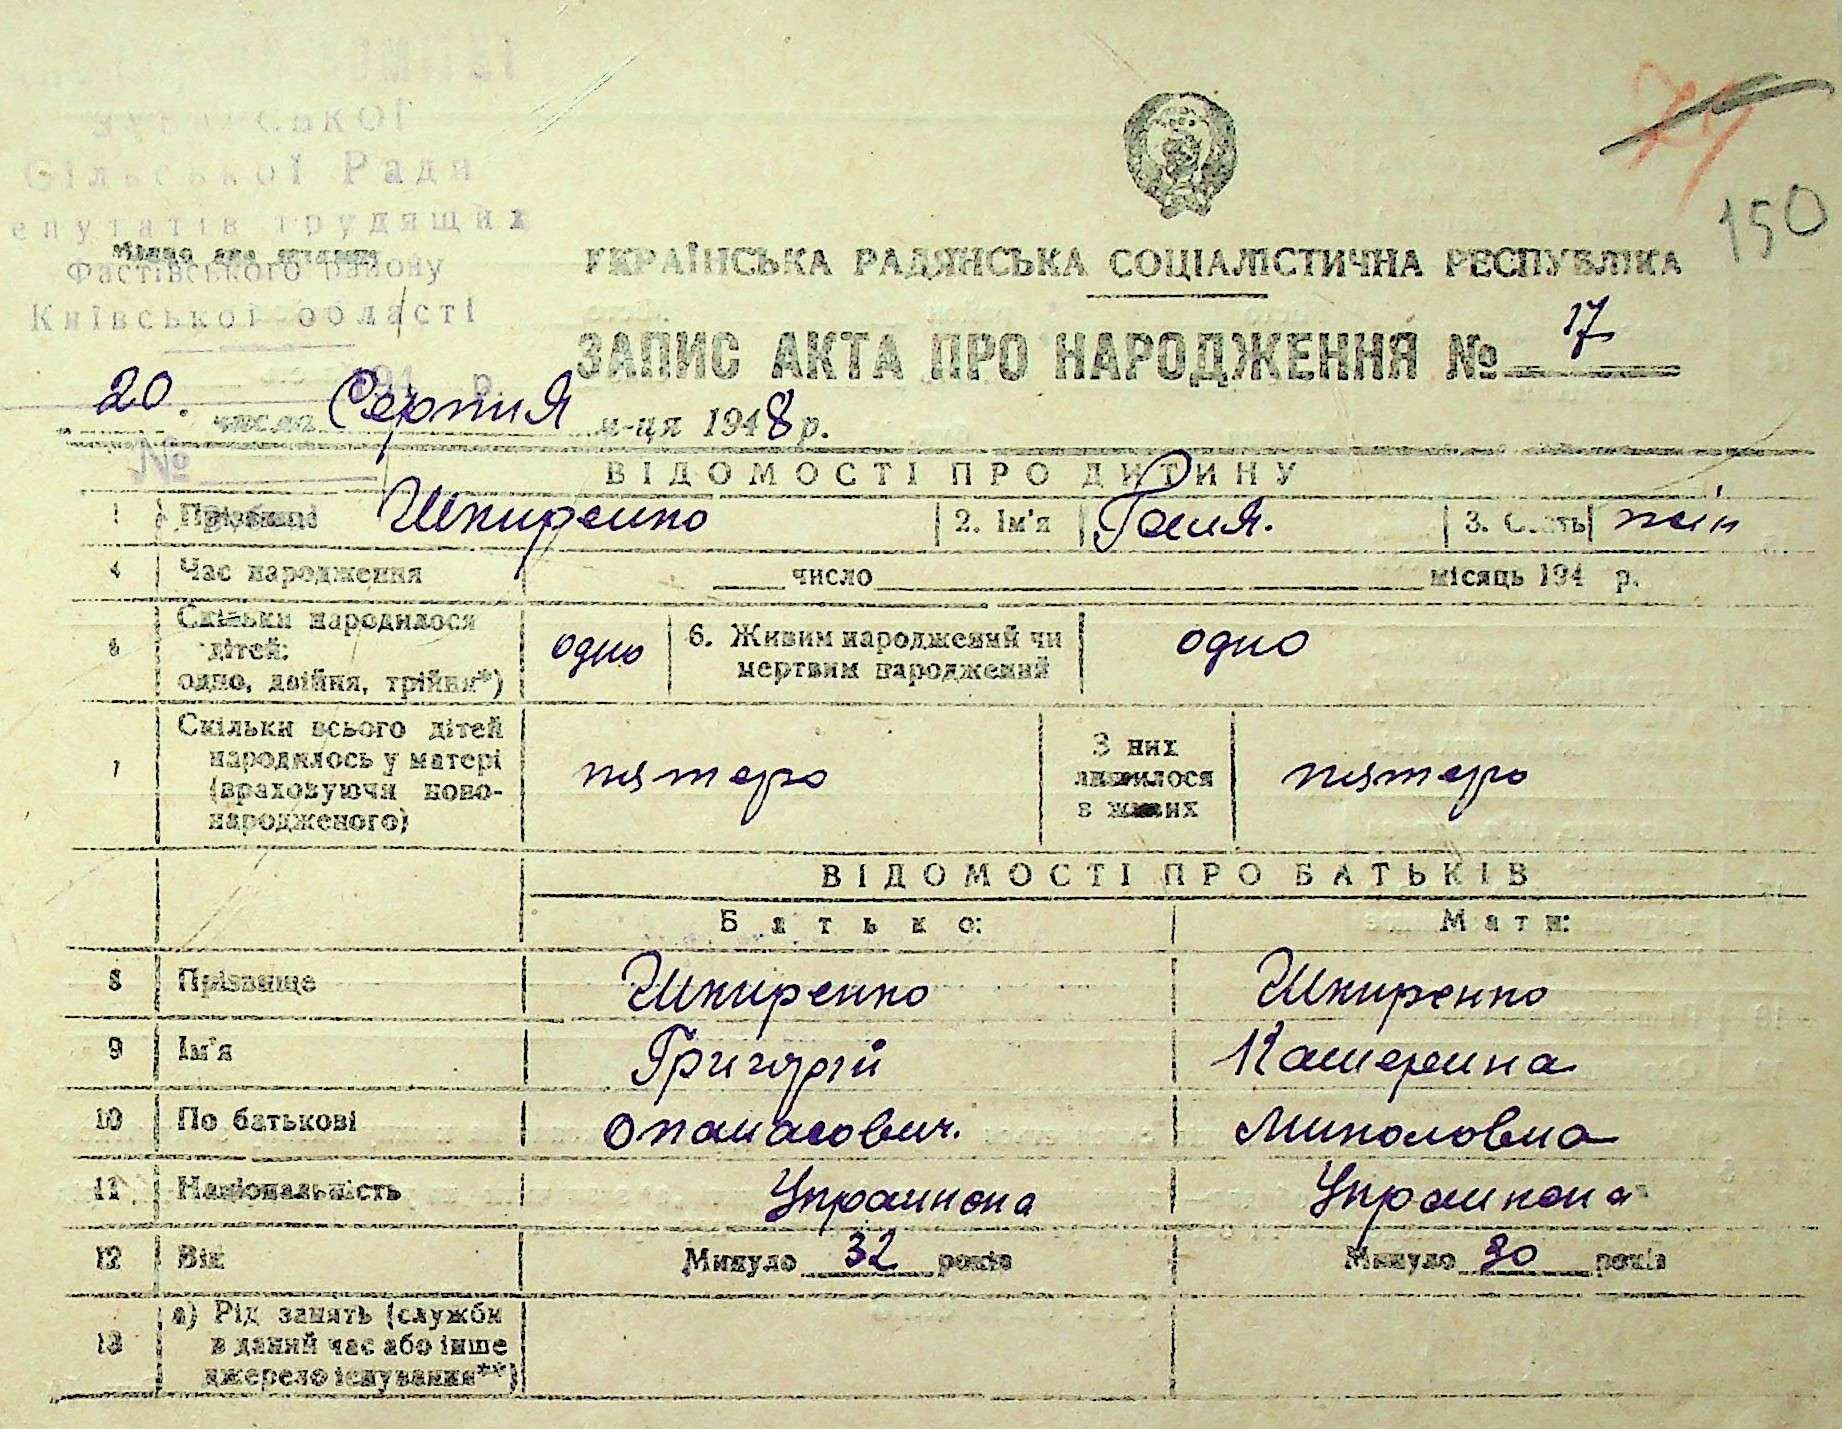 Сільської Ради
депутатів трудящих
Місце для штампа
Фастівського району
Київської області
194 р.
№
74
150
УКРАЇНСЬКА РАДЯНСЬКА СОЦІАЛІСТИЧНА РЕСПУБЛІКА
ЗАПИС АКТА ПРО НАРОДЖЕННЯ № 17
20. числа Серпня м-ця 1948 р.
ВІДОМОСТІ ПРО ДИТИНУ
1 Прізвище Шкиренко 2. Ім'я Галя. 3. Стать жін
4 Час народження число місяць 194 р.
5 Скільки народилося дітей: одно, двійня, трійня*) одно 6. Живим народжений чи мертвим народжений одно
7 Скільки всього дітей народилось у матері (враховуючи новонародженого) пятеро З них лишилося в живих пятеро
ВІДОМОСТІ ПРО БАТЬКІВ
Батько: Мати:
8 Прізвище Шкиренко Шкиренко
9 Ім'я Григорій Катерина
10 По батькові Опанасович. Миколовна
11 Національність Українека Українека
12 Вік Минуло 32 років Минуло 30 років
13 а) Рід занять (служби в даний час або інше джерело існування**)